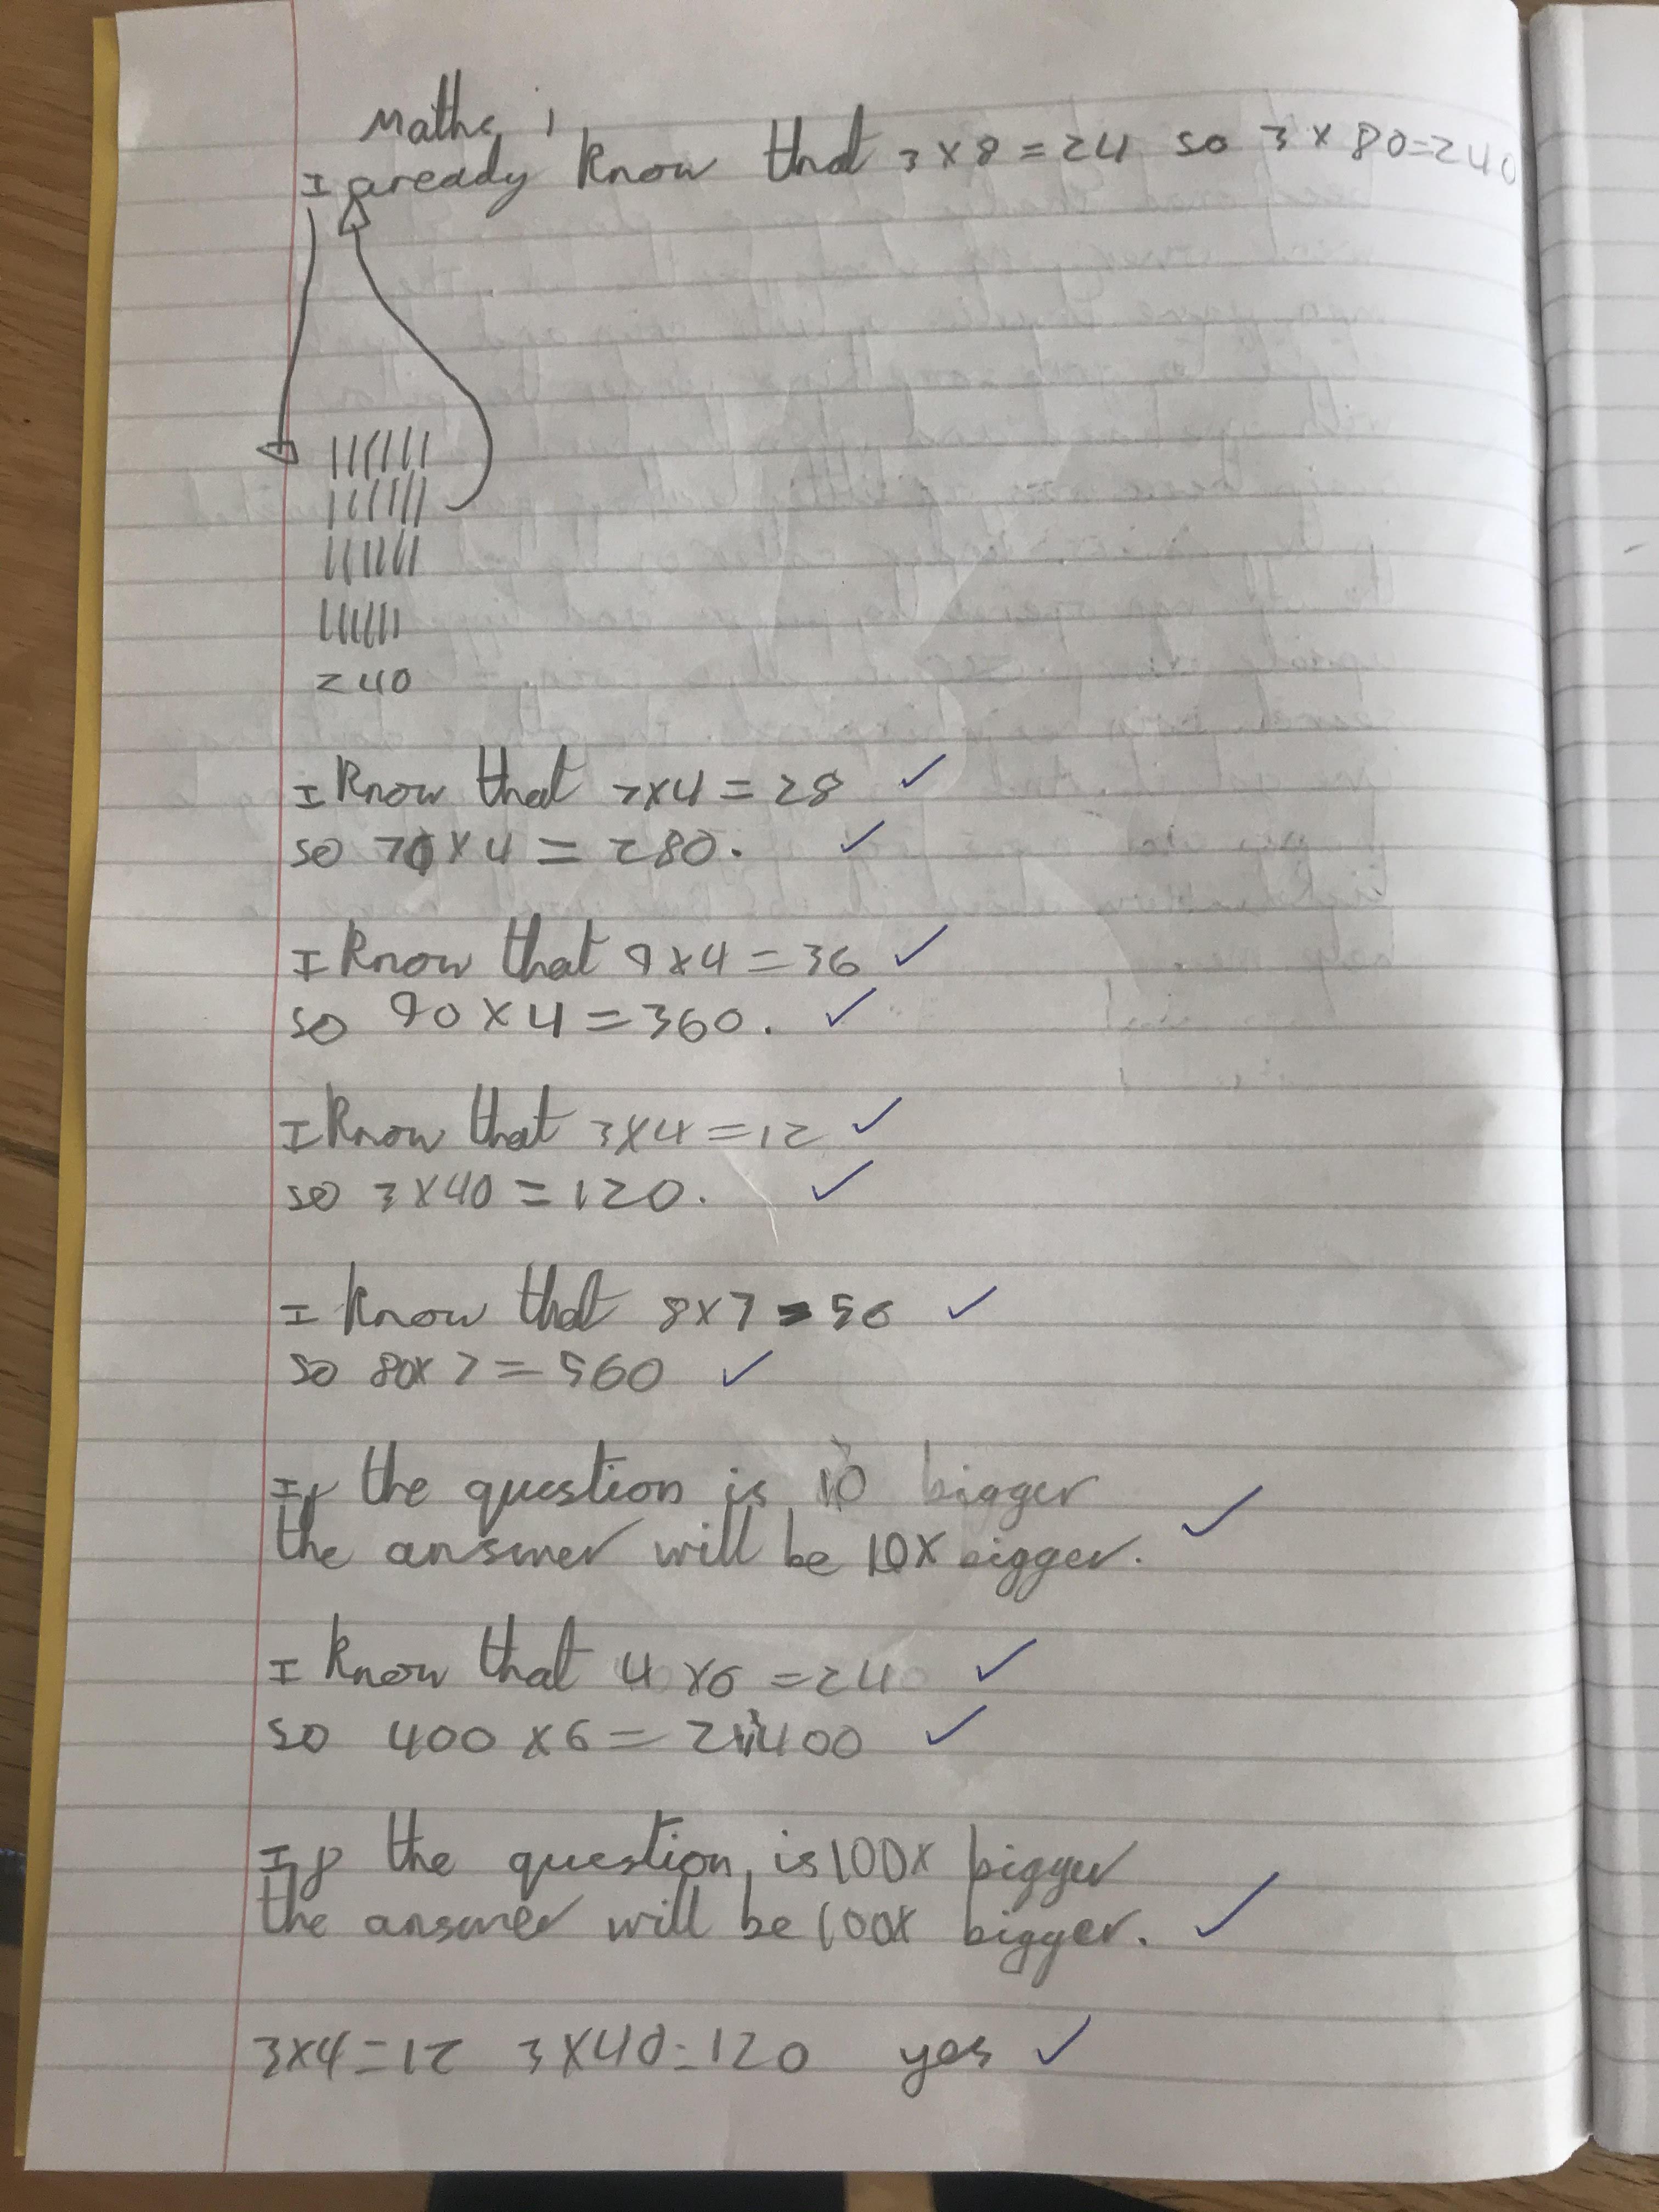 Maths
I aready know that 3 x 8 = 24 so 3 x 80 = 240
240
I know that 7x4 = 28
so 70 x 4 = 280.
I know that 9x4 = 36
so 90 x 4 = 360.
I know that 3x4 = 12
so 3 x40 = 120.
I know that 8x7 = 56
so 80x 7 = 560
If the question is 10 bigger
the answer will be 10x bigger.
I know that 4 x6 = 24
so 400 x 6 = 2400
If the question is 100x bigger
the answer will be 100x bigger.
3x4=12 3x40=120 yes